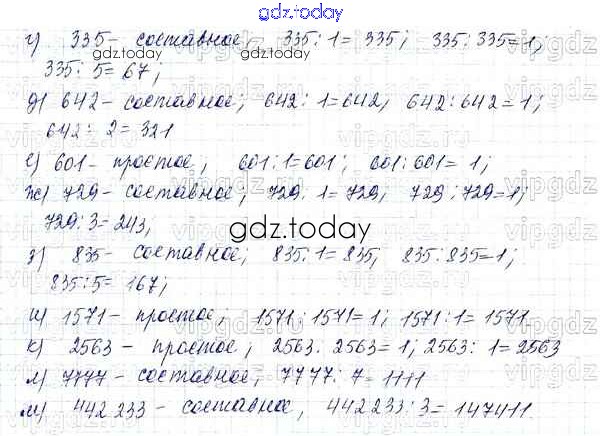 gdz.today
г) 335 - составное, 335 : 1 = 335; 335 : 335 = 1;
gdz.today
335 : 5 = 67;
д) 642 - составное; 642 : 1 = 642, 642 : 642 = 1;
642 : 2 = 321
е) 601 - простое, 601 : 1 = 601; 601 : 601 = 1;
ж) 729 - составное, 729 : 1 = 729, 729 : 729 = 1;
729 : 3 = 243,
gdz.today
з) 835 - составное; 835 : 1 = 835, 835 : 835 = 1;
835 : 5 = 167;
и) 1571 - простое; 1571 : 1571 = 1; 1571 : 1 = 1571
к) 2563 - простое; 2563 : 2563 = 1; 2563 : 1 = 2563
л) 7777 - составное, 7777 : 7 = 1111
м) 442 233 - составное, 442 233 : 3 = 147411